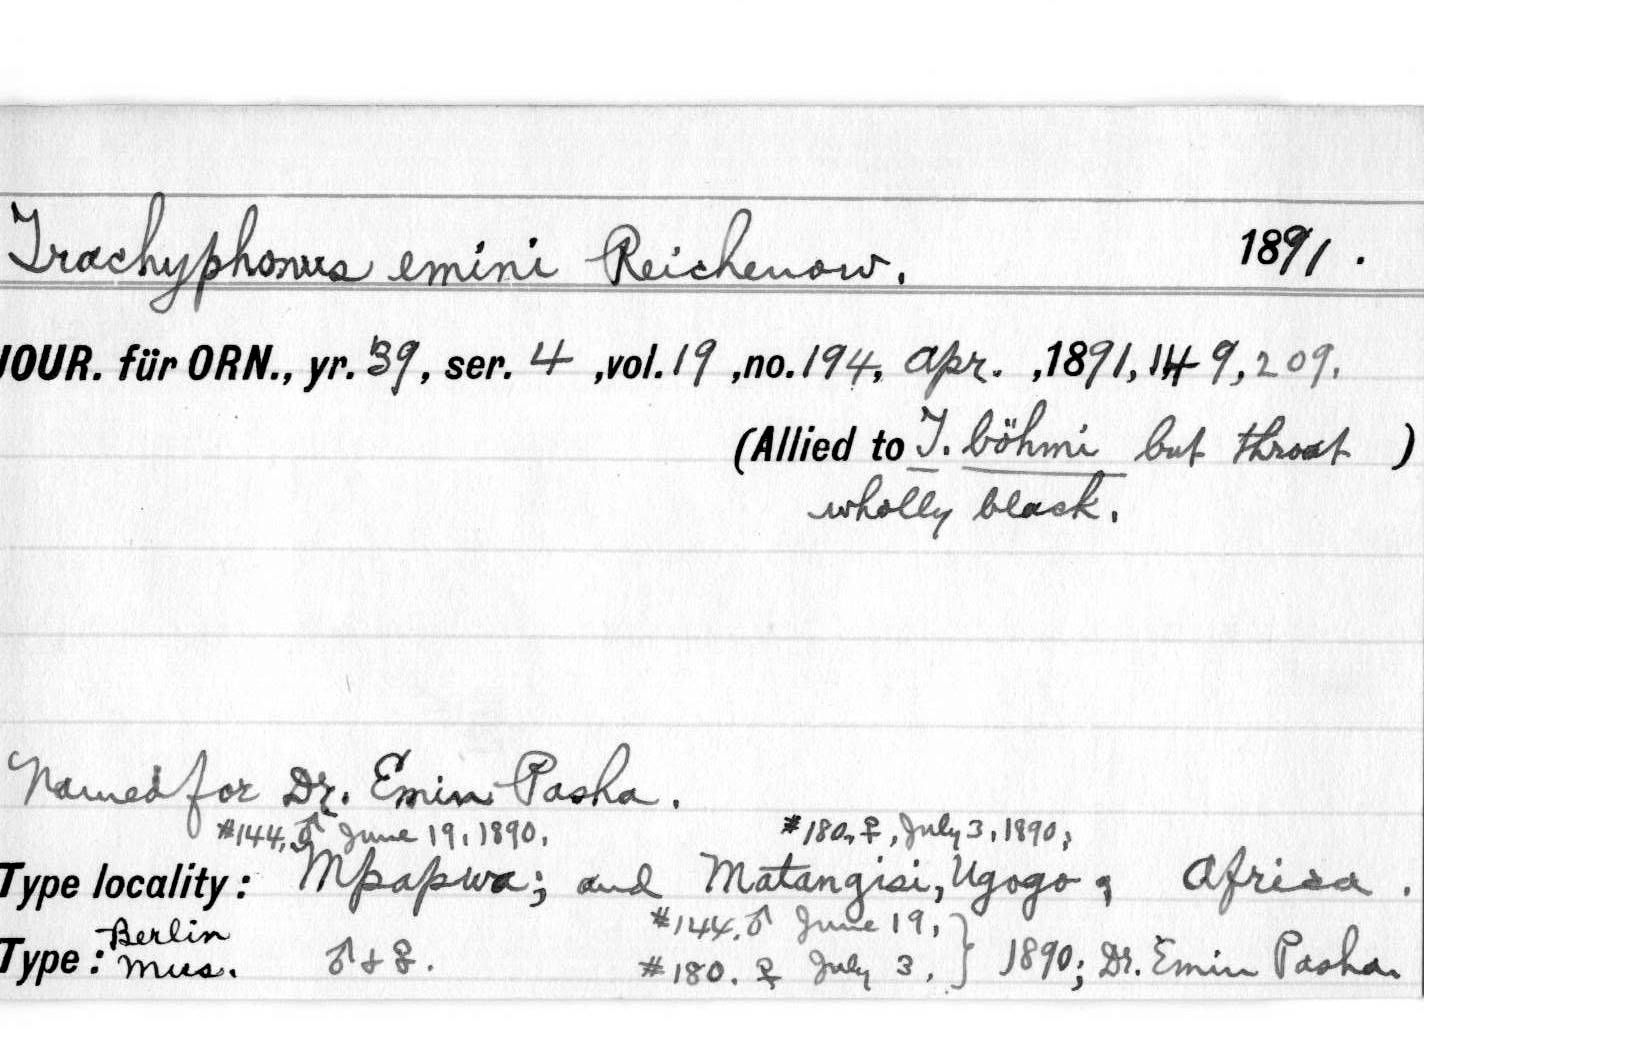 Trachyphonus emini Reichenow. 1891.
JOUR. für ORN., yr. 39, ser. 4, vol. 19, no. 194, Apr., 1891, 149, 209.
(Allied to T. böhmi but throat)
wholly black.
Named for Dr. Emin Pasha.
#144, ♂ June 19, 1890, #180, ♀, July 3, 1890;
Type locality: Mpapwa; and Matangisi, Ugogo, Africa.
#144, ♂ June 19,
Type: Berlin Mus. ♂ + ♀. #180. ♀ July 3, } 1890; Dr. Emin Pasha.